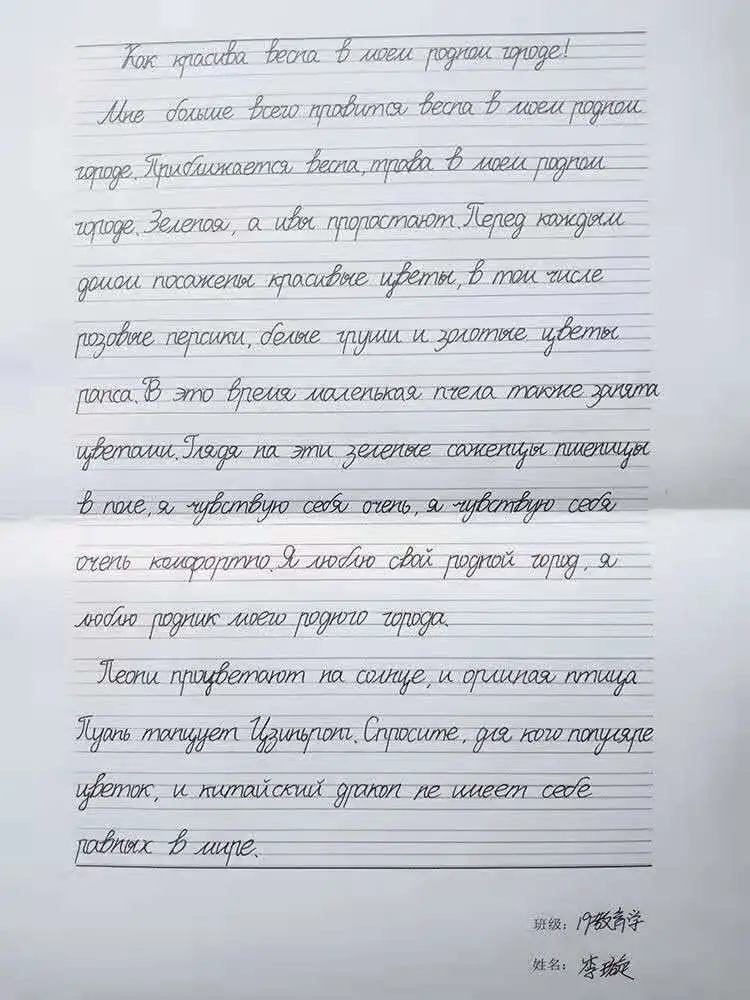 Как красива весна в моем родном городе!
Мне больше всего нравится весна в моем родном
городе. Приближается весна, трава в моем родном
городе. Зеленая, а ивы прорастают. Перед каждым
домом посажены красивые цветы, в том числе
розовые персики, белые груши и золотые цветы
рапса. В это время маленькая пчела также занята
цветами. Глядя на эти зеленые саженцы пшеницы
в поле, я чувствую себя очень, я чувствую себя
очень комфортно. Я люблю свой родной город, я
люблю родник моего родного города.
Пеони процветают на солнце, и орлиная птица
Луань танцует Цзиньронг. Спросите, для кого популяре
цветок, и китайский дракон не имеет себе
равных в мире.
班级: 19教育学
姓名: 李璇